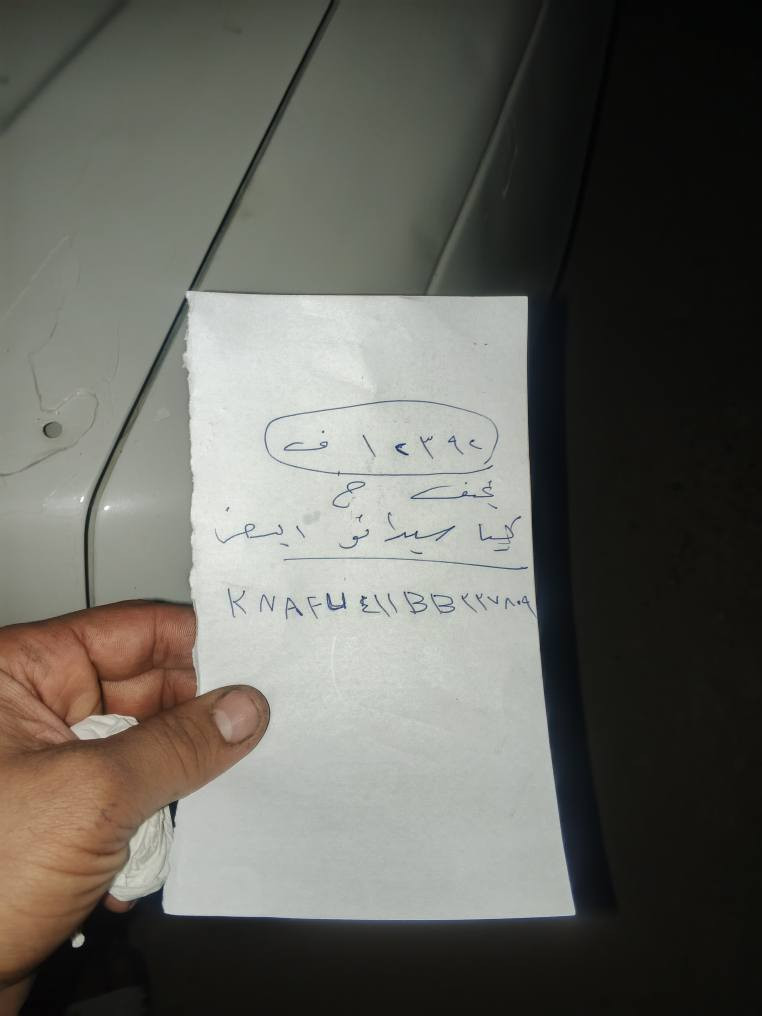 ١٢٣٩٢ ف
نجف ح
كيا سيراتو ابيض
KNAFU٤١١BB٢٢٧٨٠٩